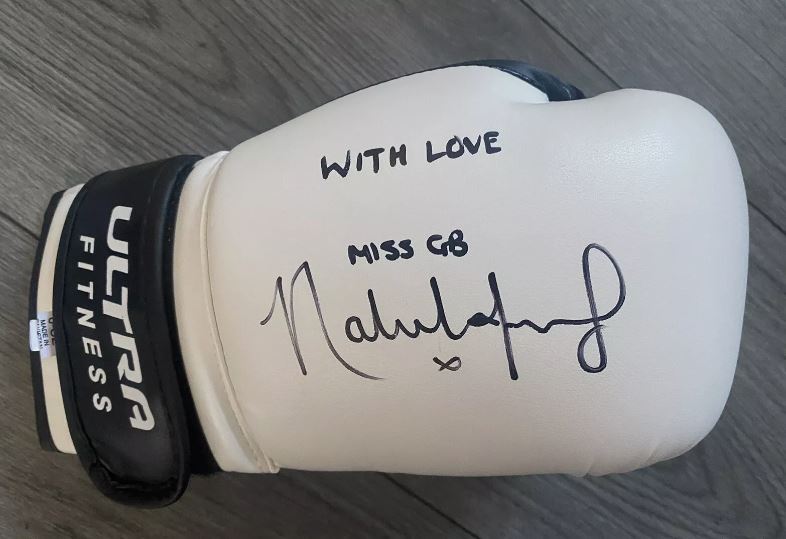 WITH LOVE
MISS GB
x
ULTRA
FITNESS
MADE IN